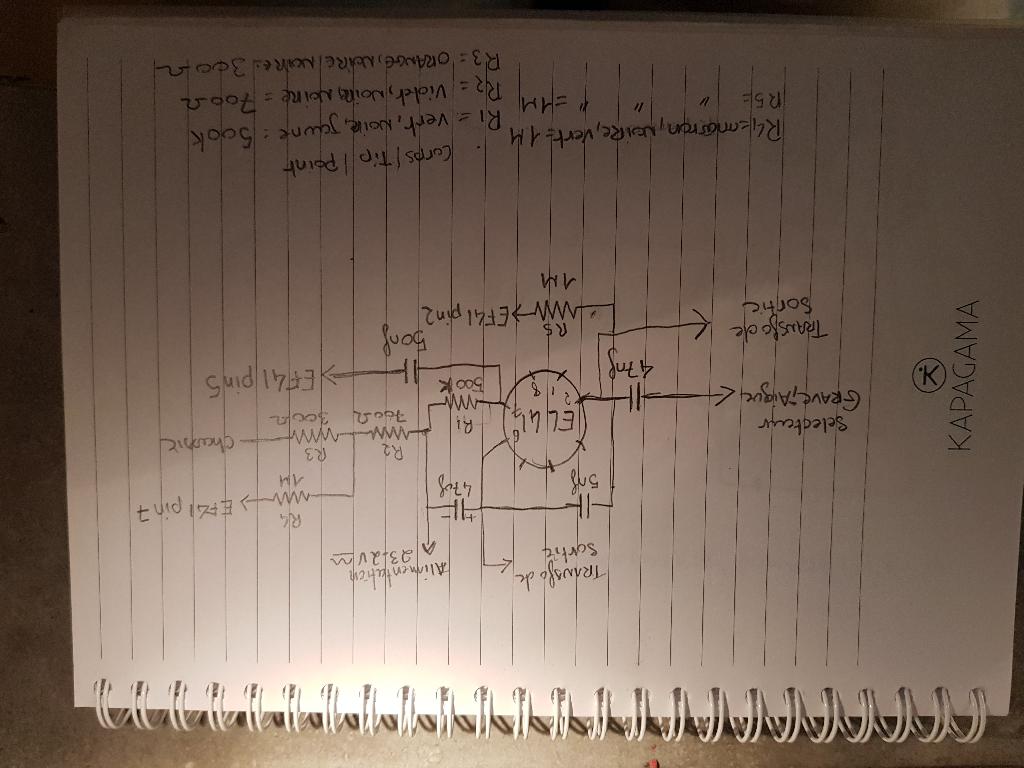 Transfo de
Sortie
Alimentation
232V
5nf
+
47nf
-
R4
1M
EF41 pin7
Selecteur
Grave/Aigue
47nf
EL41
2
1
8
7
6
R1
500K
R2
700Ω
R3
300Ω
50nf
EF41 pin5
Transfo de
Sortie
R5
1M
EF41 pin2
Corps / Tip / point
R4=marron, noire, vert=1M
R5= " " " =1M
R1 = vert, noire, jaune = 500K
R2 = Violet, noire, noire = 700Ω
R3 = orange, noire, noire = 300Ω
K.
KAPAGAMA